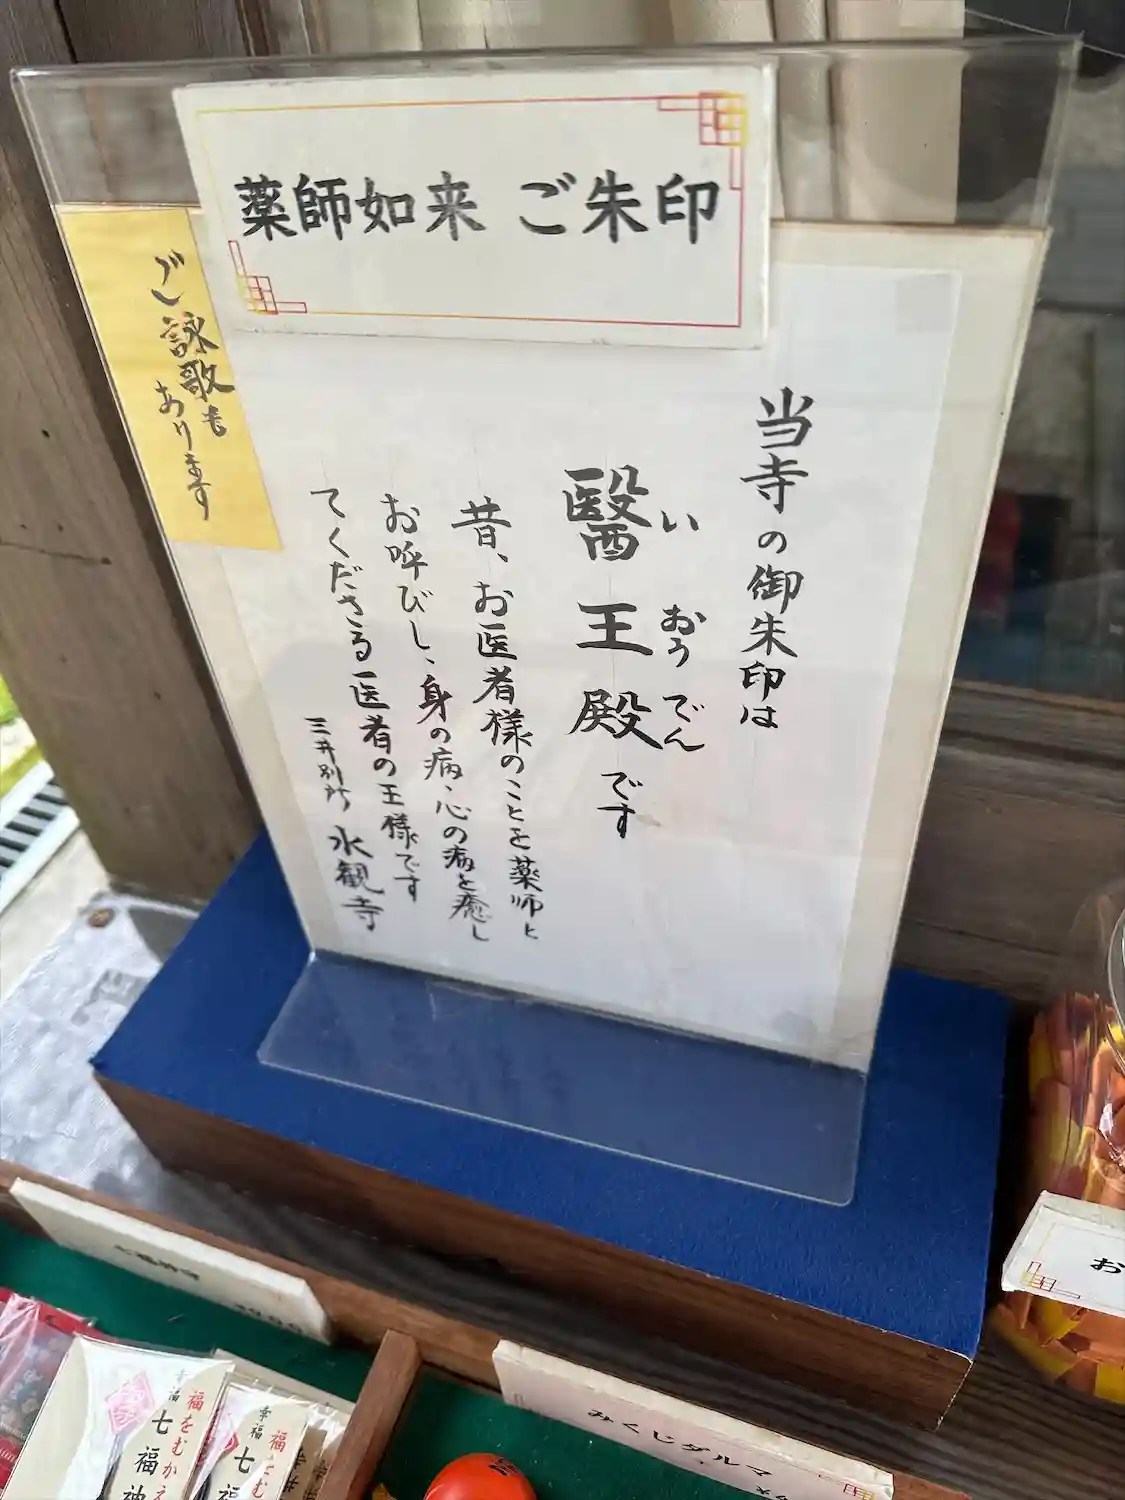 薬師如来 ご朱印
ご詠歌も
あります
当寺の御朱印は
醫王殿です
い おう でん
昔、お医者様のことを薬師と
お呼びし、身の病・心の病を癒し
てくださる医者の王様です
三井別所 水観寺
お
みくじダルマ
福をむかえ
幸福
七福神
福
幸福
七福